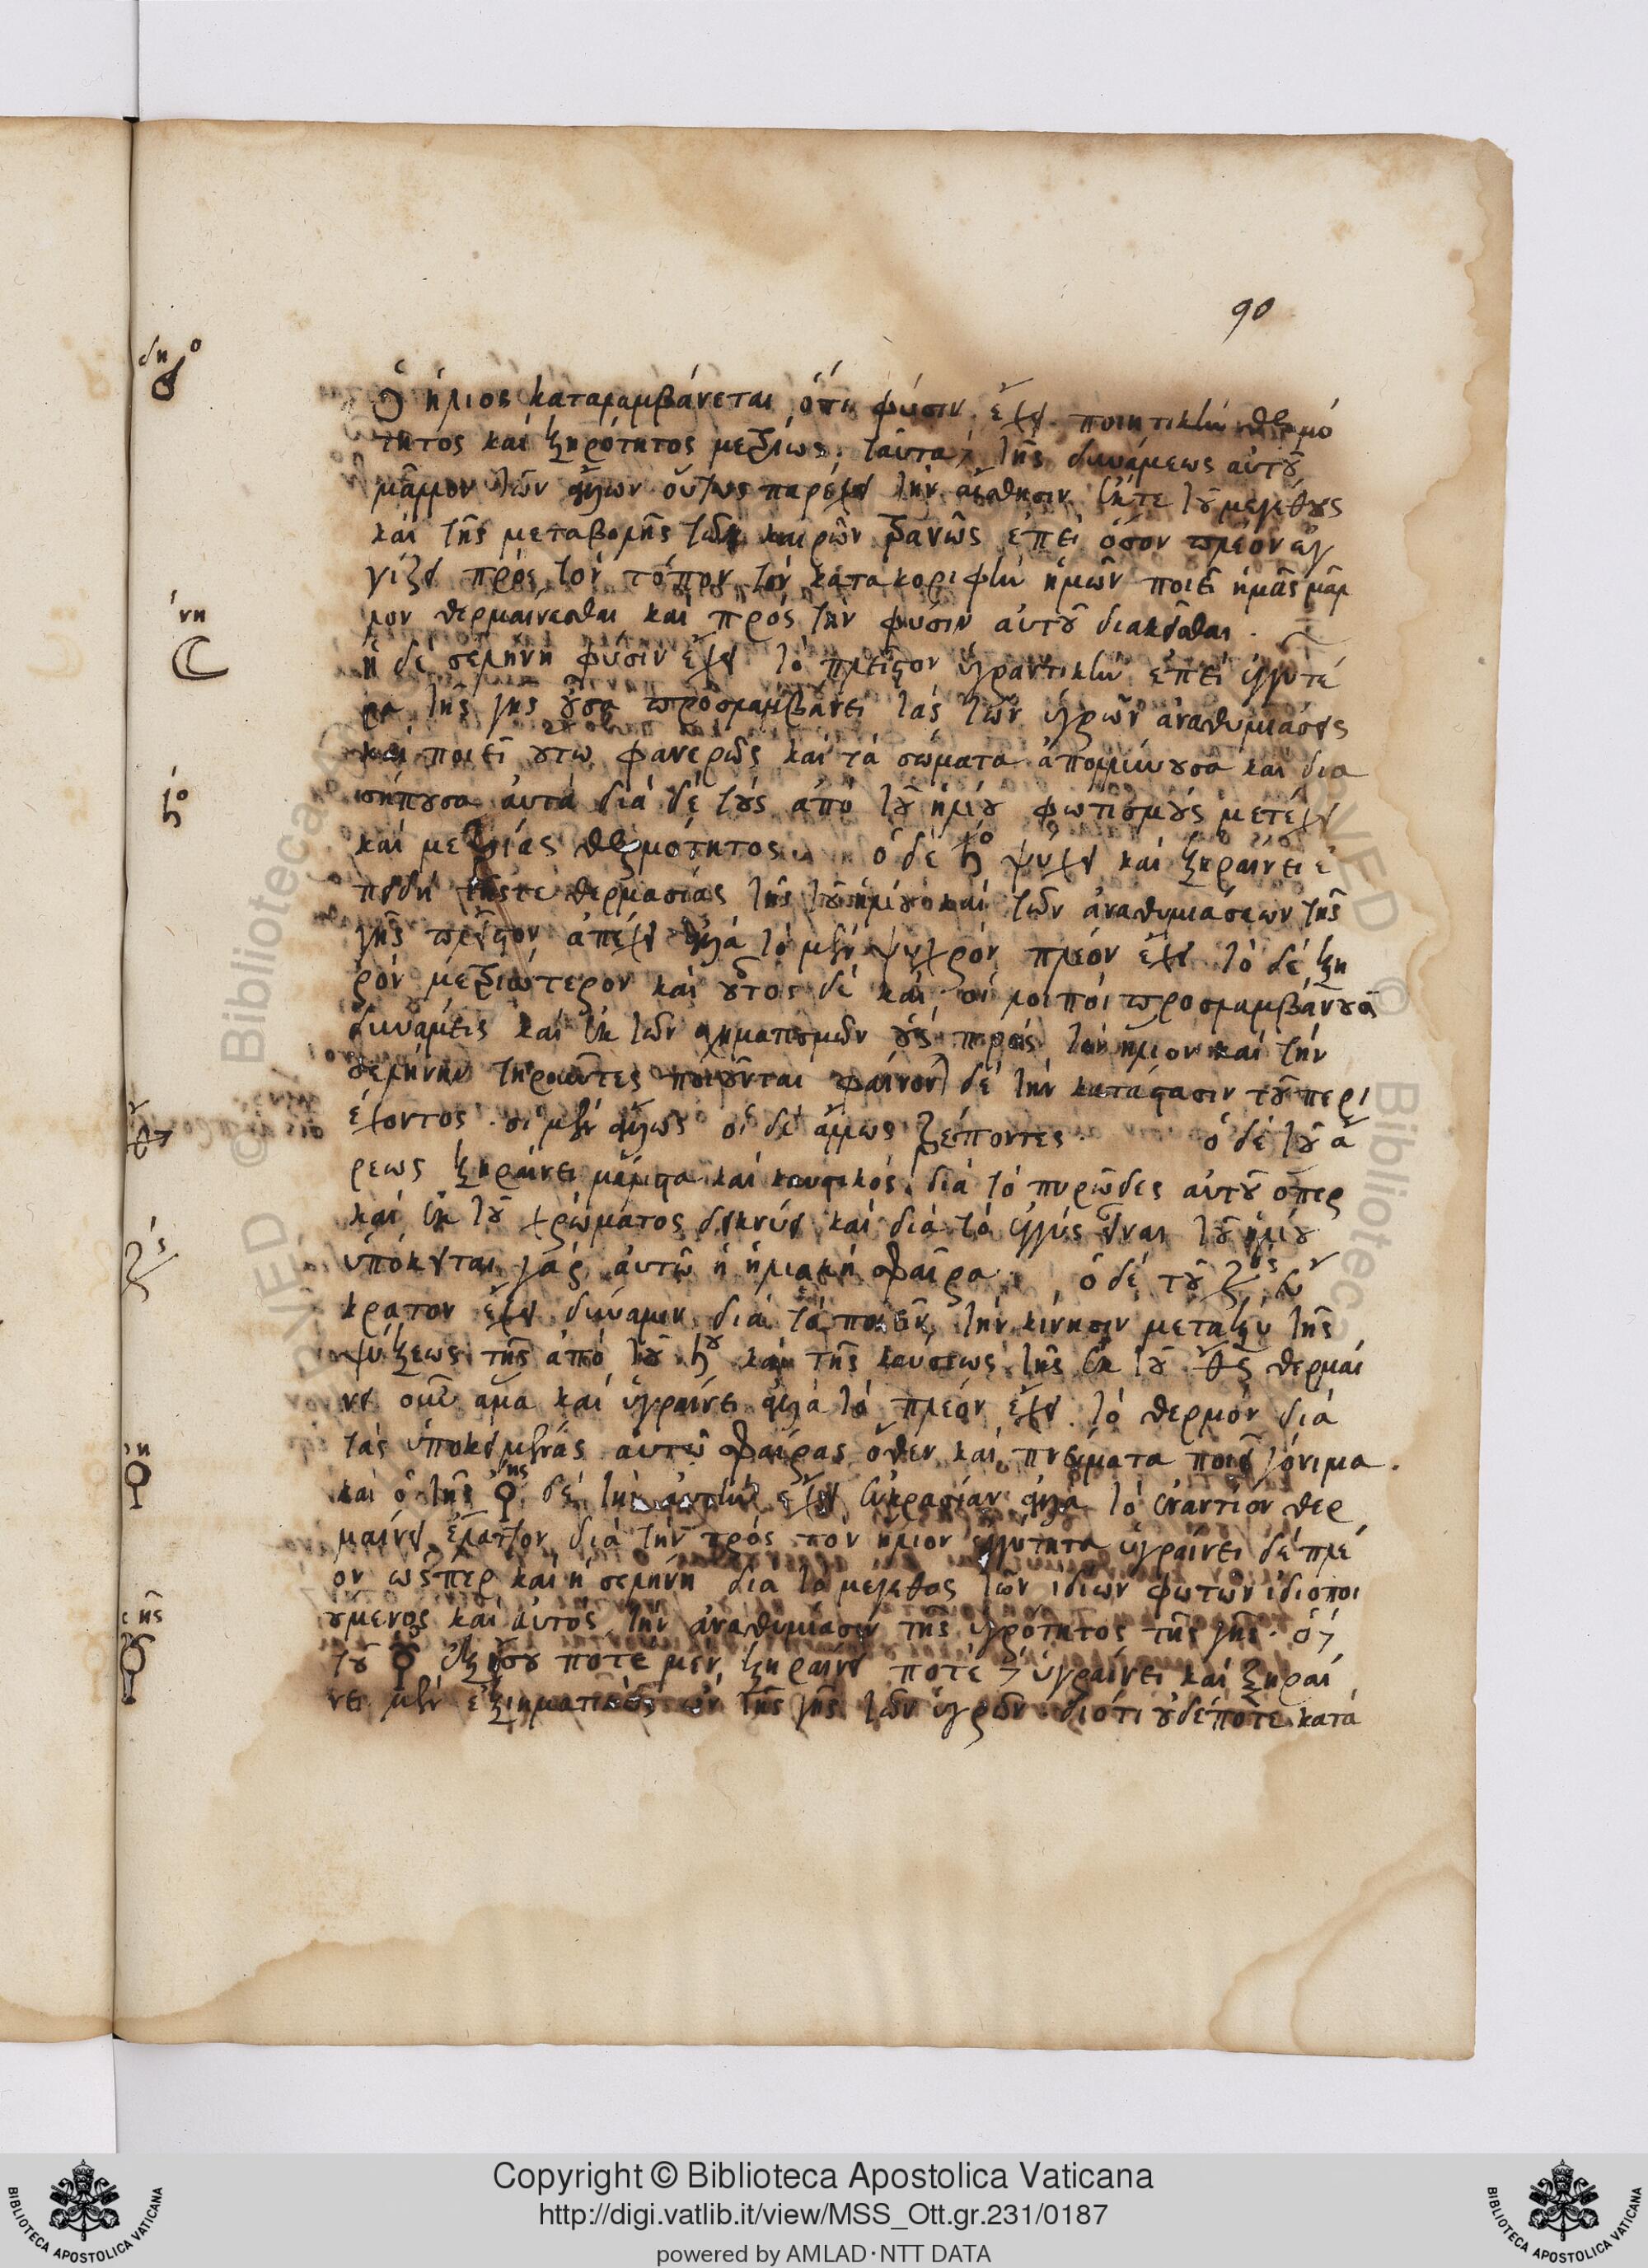 90
Ὁ ήλιος καταλαμβάνεται ότι φύσιν έχει ποιητικήν θερμό
τητος και ξηρότητος μετρίως. ταύτα της δυνάμεως αυτού
μάλλον των άλλων ούτως παρέχει την αίσθησιν έκτε του μεγέθους
και της μεταβολής των καιρών φανώς επεί όσον πλέον εγ
γίζει πρός τον τόπον τον κατακορυφήν ημών ποιεί ημάς μάλ
λον θερμαίνεσθαι και πρός την φύσιν αυτού διακείσθαι.
η δέ σελήνη φύσιν έχει το πλείστον υγραντικήν επεί εγγυτέ
ρα της γης ούσα προσλαμβάνει τας των υγρών αναθυμιάσεις
και ποιεί ούτω φανερώς και τα σώματα απαλλύνουσα και δια
σήπουσα αυτά διά δέ τους από του ηλίου φωτισμούς μετέχει
και μετρίας θερμότητος. ο δέ ♄ο ψύχει και ξηραίνει ε
πειδή της τε θερμασίας της του ηλίου και των αναθυμιάσεων της
γης πλείστον απέχει αλλά το μέν ψυχρόν πλέον έχει το δέ ξη
ρόν μετριώτερον και ούτος δέ και οι λοιποί προσλαμβάνουσι
δυνάμεις και εκ των σχηματισμών ους πρός τον ήλιον και την
σελήνην τηρούντες ποιούνται φαίνονται δέ την κατάστασιν του περι
έχοντος. οι μέν άλλως οι δέ άλλως τρέποντες. ο δέ του ά
ρεως ξηραίνει μάλιστα και καυστικός. διά το πυρώδες αυτού όπερ
και εκ του χρώματος δεικνύει και διά το εγγύς είναι του ηλίου
υπόκειται γάρ αυτώ η ηλιακή σφαίρα. ο δέ του ♃ος εύ
κρατον έχει δύναμιν διά το ποιείν την κίνησιν μεταξύ της
ψύξεως της από του ♄ου και της καύσεως της εκ του ♂ς θερμαί
νει ομού άμα και υγραίνει αλλά το πλέον έχει το θερμόν διά
τας υποκειμένας αυτώ σφαίρας όθεν και πνεύματα ποιεί γόνιμα.
και ο της ♀ης δέ την αυτήν έχει ευκρασίαν αλλά το εναντίον θερ
μαίνει έλαττον διά την πρός τον ήλιον εγγύτητα υγραίνει δέ πλέ
ον ώσπερ και η σελήνη δια το μέγεθος των ιδίων φώτων ιδιοποι
ούμενος και αυτός την αναθυμίασιν της υγρότητος της γης.
του ☿ εξίσου ποτέ μέν ξηραίνει ποτέ υγραίνει και ξηραί
νει μέν της γης των υγρών διότι ουδέποτε κατά
Copyright © Biblioteca Apostolica Vaticana
http://digi.vatlib.it/view/MSS_Ott.gr.231/0187
powered by AMLAD·NTT DATA
BIBLIOTECA APOSTOLICA VATICANA
BIBLIOTECA APOSTOLICA VATICANA